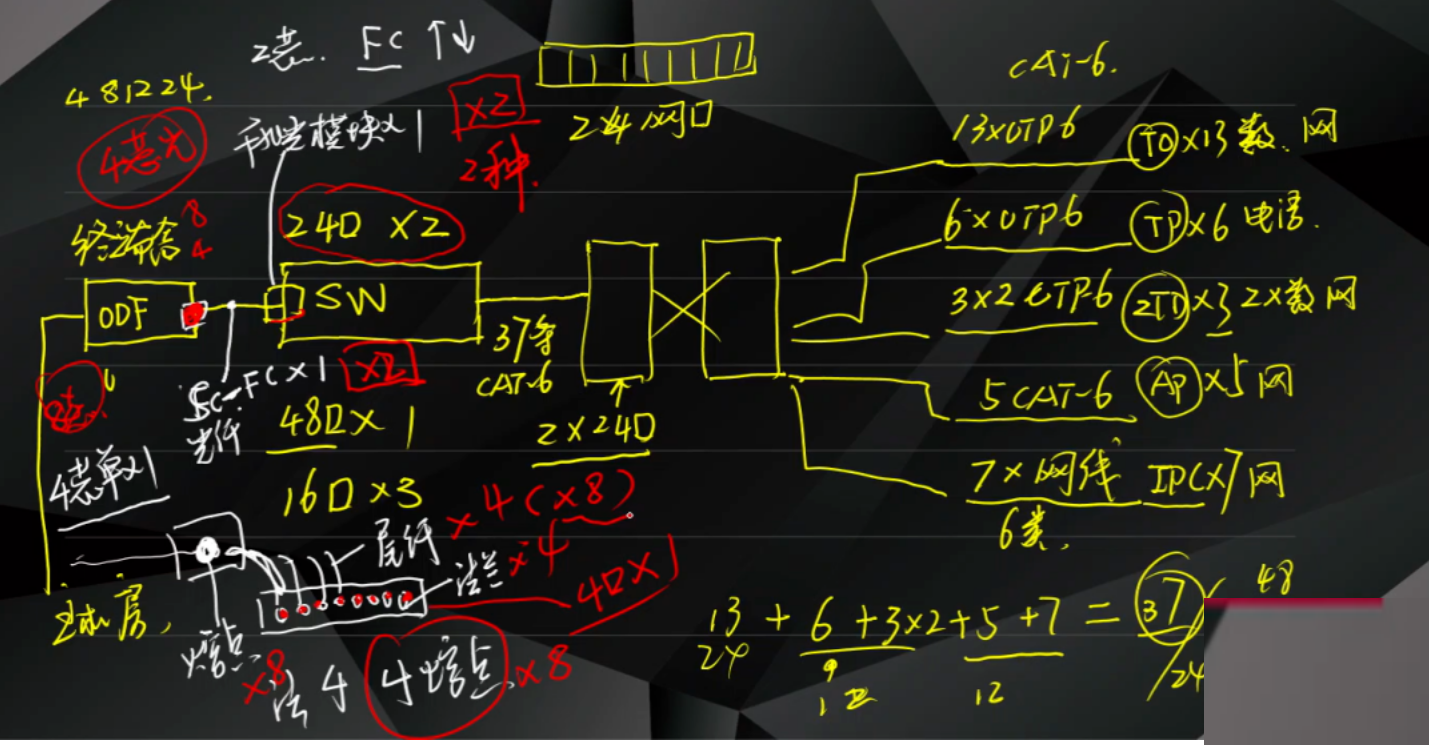 2芯. FC ↑↓
4 8 12 24.
4芯光
千兆光模块×1
×2
2种.
24网口
CAT-6.
13×UTP6
TO×13 数. 网
终端盒
8
4
24口 ×2
6×UTP6
TP×6 电话.
ODF
SW
37条
CAT-6
3×2 UTP-6
2TO×3 2×数网
8芯.
SC-FC×1
×2
光纤
48口×1
2×24口
5CAT-6
AP×5网
4芯单×1
16口×3
7×网线
IPC×7网
6类.
尾纤
×4(×8)
法兰
×4
4口×1
主机房,
熔点
×8
法4
4熔点
×8
13 + 6 + 3×2 + 5 + 7 = 37
48
24
12
/24